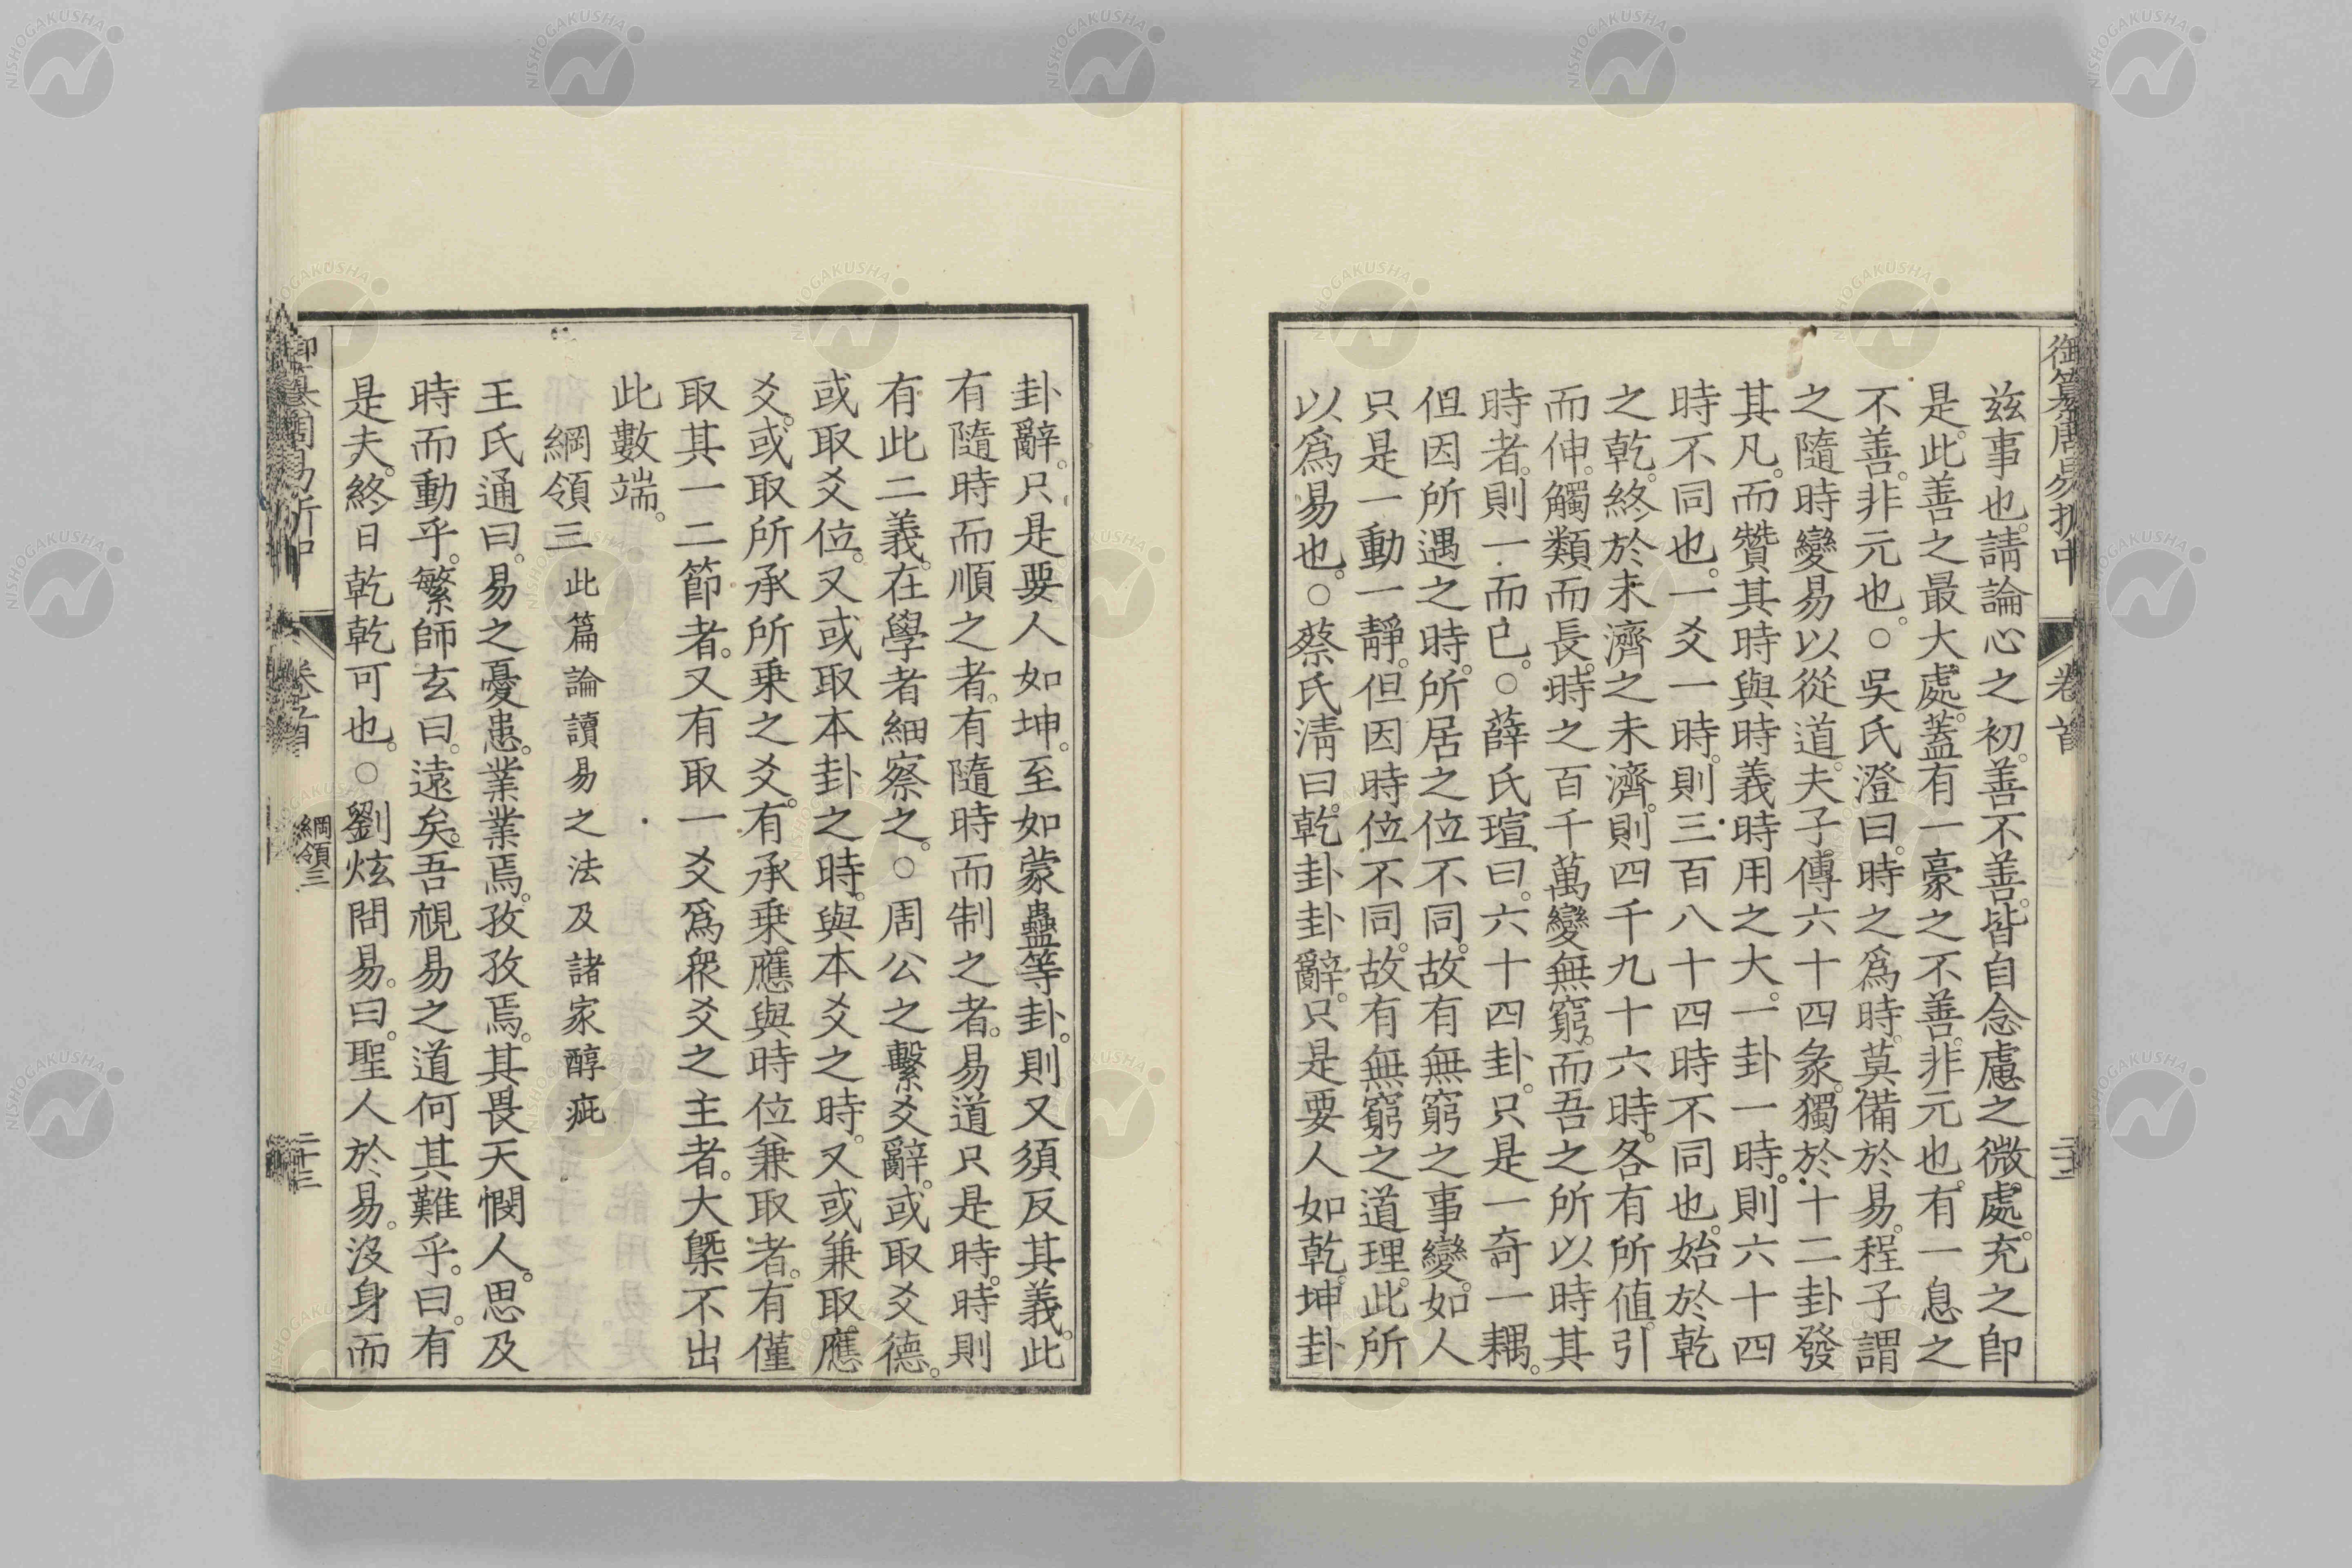 御纂周易折中
卷首
二十二
茲事也。請論心之初。善不善。皆自念慮之微處。充之卽
是。此善之最大處。蓋有一豪之不善。非元也。有一息之
不善。非元也。○吳氏澄曰。時之爲時。莫備於易。程子謂
之隨時變易以從道。夫子傳六十四彖。獨於十二卦發
其凡。而贊其時與時義時用之大。一卦一時。則六十四
時不同也。一爻一時。則三百八十四時不同也。始於乾
之乾。終於未濟之未濟。則四千九十六時。各有所値。引
而伸。觸類而長。時之百千萬變無窮。而吾之所以時其
時者。則一而已。○薛氏瑄曰。六十四卦。只是一奇一耦。
但因所遇之時。所居之位不同。故有無窮之事變。如人
只是一動一靜。但因時位不同。故有無窮之道理。此所
以爲易也。○蔡氏淸曰。乾卦卦辭。只是要人如乾。坤卦
卦辭。只是要人如坤。至如蒙蠱等卦。則又須反其義。此
有隨時而順之者。有隨時而制之者。易道只是時。時則
有此二義。在學者細察之。○周公之繫爻辭。或取爻德。
或取爻位。又或取本卦之時。與本爻之時。又或兼取應
爻。或取所承所乘之爻。有承乘應與時位兼取者。有僅
取其一二節者。又有取一爻爲衆爻之主者。大槩不出
此數端。
綱領三 此篇論讀易之法及諸家醇疵
王氏通曰。易之憂患。業業焉。孜孜焉。其畏天憫人。思及
時而動乎。繁師玄曰。遠矣。吾視易之道何其難乎。曰。有
是夫。終日乾乾可也。○劉炫問易。曰。聖人於易。沒身而
御纂周易折中
卷首
綱領三
二十三
NISHOGAKUSHA